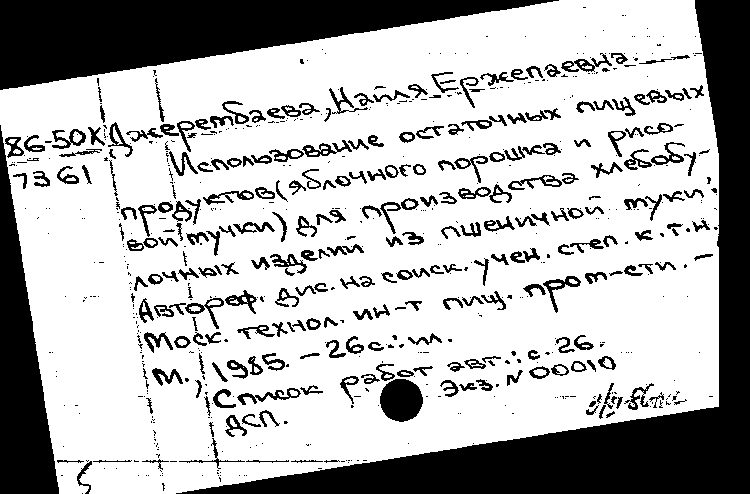 86-50К Джерембаева, Наиля Ержепаевна.
7361
Использование остаточных пищевых
продуктов (яблочного порошка и рисо-
вой мучки) для производства хлебобу-
лочных изделий из пшеничной муки:
Автореф. дис. на соиск. учен. степ. к.т.н.
Моск. технол. ин-т пищ. пром-сти. –
М., 1985. – 26 с.: ил.
Список работ авт.: с. 26.
ДСП. Экз. N 00010